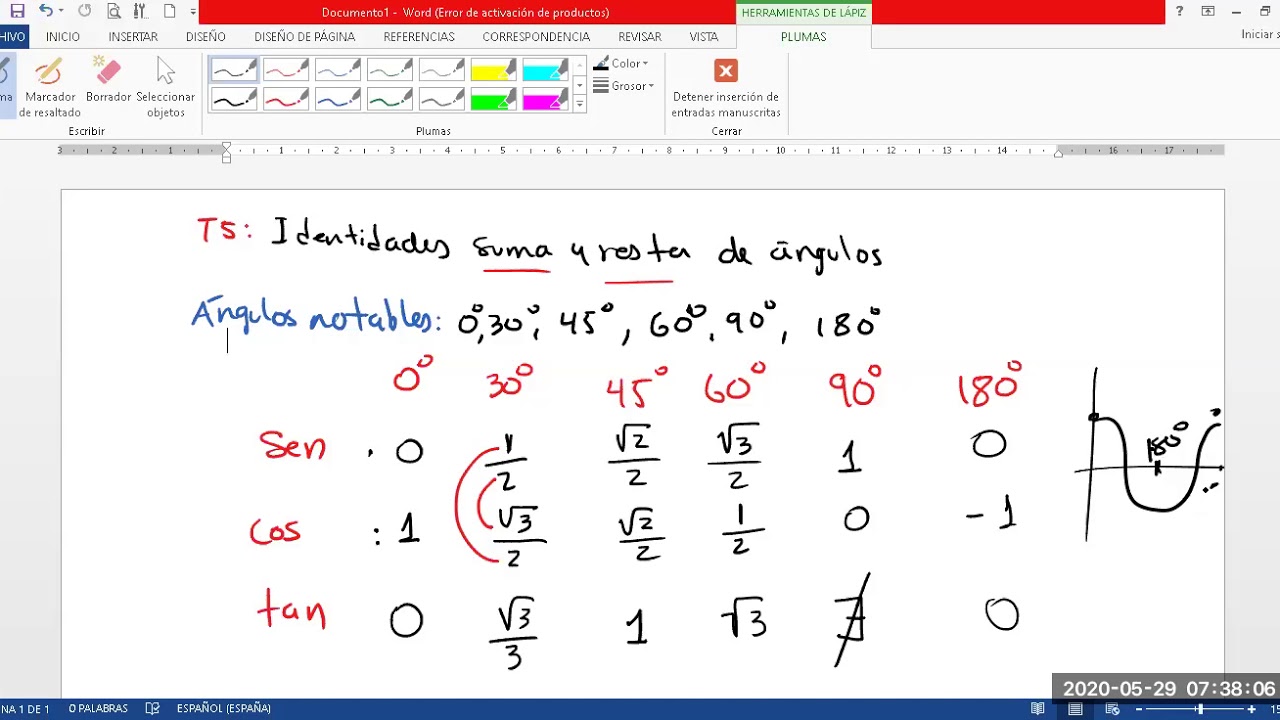 Documento1 - Word (Error de activación de productos)
HERRAMIENTAS DE LÁPIZ
?
HIVO INICIO INSERTAR DISEÑO DISEÑO DE PÁGINA REFERENCIAS CORRESPONDENCIA REVISAR VISTA PLUMAS Iniciar s
ma Marcador de resaltado Borrador Seleccionar objetos
Color
Grosor
Detener inserción de entradas manuscritas
Escribir Plumas Cerrar
3 2 1 1 2 3 4 5 6 7 8 9 10 11 12 13 14 16 17
T5: Identidades suma y resta de ángulos
Ángulos notables: 0°, 30°, 45°, 60°, 90°, 180°
0° 30° 45° 60° 90° 180°
Sen 0 1/2 √2/2 √3/2 1 0
180°
Cos : 1 √3/2 √2/2 1/2 0 -1
tan 0 √3/3 1 √3 ∄ 0
2020-05-29 07:38:06
NA 1 DE 1 0 PALABRAS ESPAÑOL (ESPAÑA) - + 15